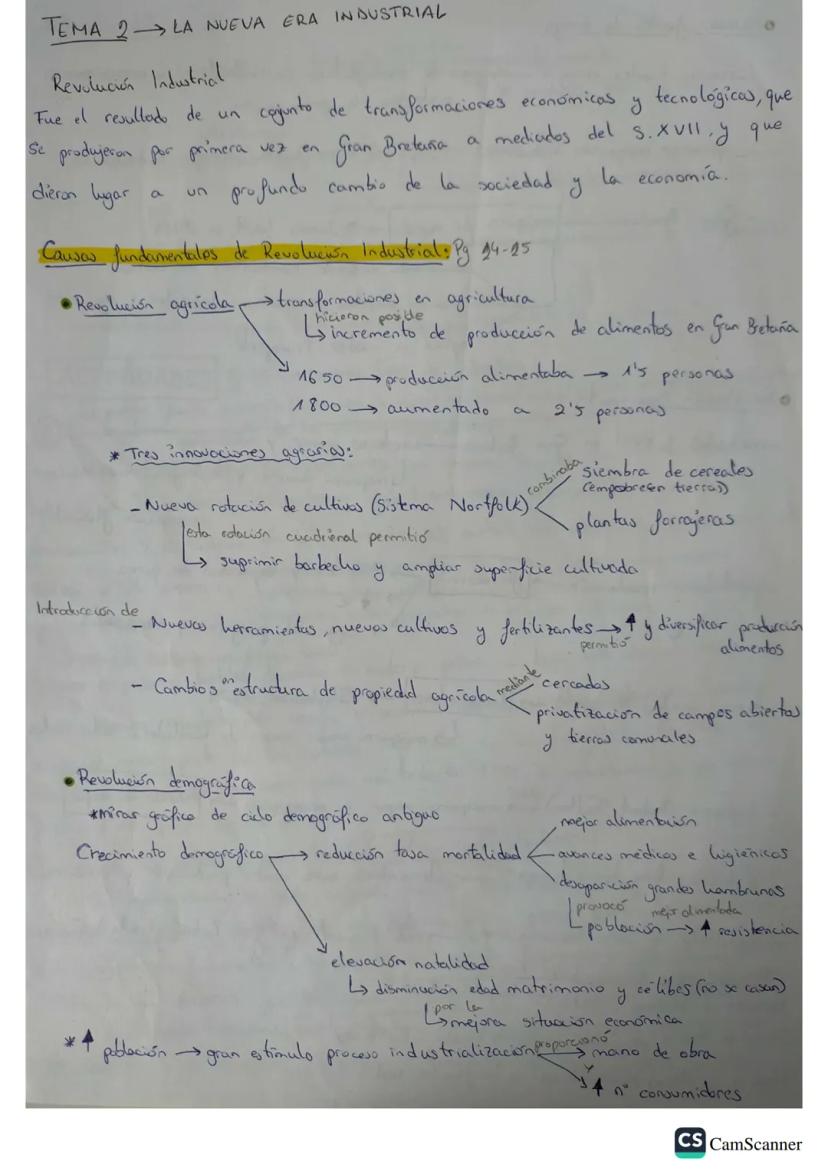 TEMA 2 → LA NUEVA ERA INDUSTRIAL
Revolución Industrial
Fue el resultado de un conjunto de transformaciones económicas y tecnológicas, que
se produjeron por primera vez en Gran Bretaña a mediados del S. XVII, y que
dieron lugar a un profundo cambio de la sociedad y la economía.
Causas fundamentales de Revolución Industrial: Pg 24-25
• Revolución agrícola → transformaciones en agricultura
hicieron posible
↳ incremento de producción de alimentos en Gran Bretaña
1650 → producción alimentaba → 1'5 personas
1800 → aumentado a 2'5 personas
* Tres innovaciones agrarias:
- Nueva rotación de cultivos (Sistema Nortfolk) combinaba siembra de cereales
(empobrecen tierras)
plantas forrajeras
esta rotación cuadrienal permitió
↳ suprimir barbecho y ampliar superficie cultivada
Introducción de
- Nuevas herramientas, nuevos cultivos y fertilizantes → ↑ y diversificar producción
permitió alimentos
- Cambios en estructura de propiedad agrícola mediante cercados
privatización de campos abiertos
y tierras comunales
• Revolución demográfica
*mirar gráfico de ciclo demográfico antiguo
mejor alimentación
Crecimiento demográfico → reducción tasa mortalidad avances médicos e higiénicos
desaparición grandes hambrunas
provocó mejor alimentada
población → ↑ resistencia
elevación natalidad
↳ disminución edad matrimonio y célibes (no se casan)
por la
↳ mejora situación económica
* ↑ población → gran estímulo proceso industrialización proporcionó → mano de obra
y
↑ nº consumidores
CS CamScanner